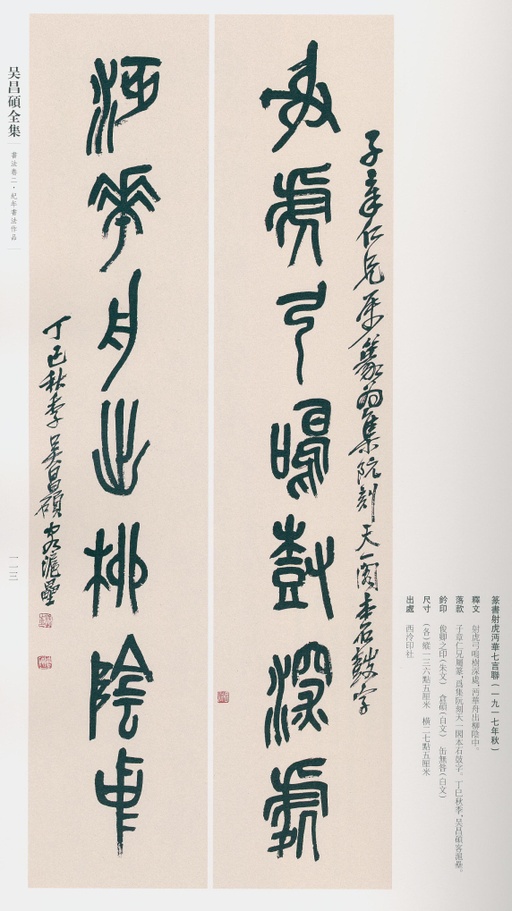 篆書射虎沔華七言聯（一九一七年秋）
釋文　射虎弓鳴樹深處，沔華舟出柳陰中。
落款　子章仁兄屬篆，爲集阮刻天一閣本石鼓字。丁巳秋季，吴昌碩客滬壘。
鈐印　俊卿之印（朱文）　倉碩（白文）　缶無咎（白文）
尺寸　（各）縱一三六點五厘米　横二七點五厘米
出處　西泠印社
子章仁兄屬篆爲集阮刻天一閣本石鼓字
射虎弓鳴樹深處
沔華舟出柳陰中
丁巳秋季吴昌碩客滬壘
吴昌碩全集
書法卷二·紀年書法作品
一一三